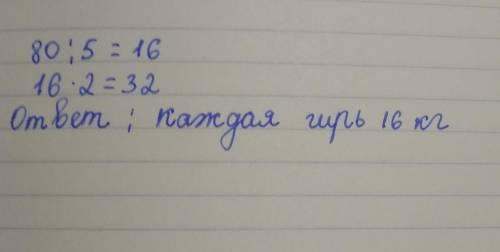 80 : 5 = 16
16 · 2 = 32
Ответ : Каждая гирь 16 кг